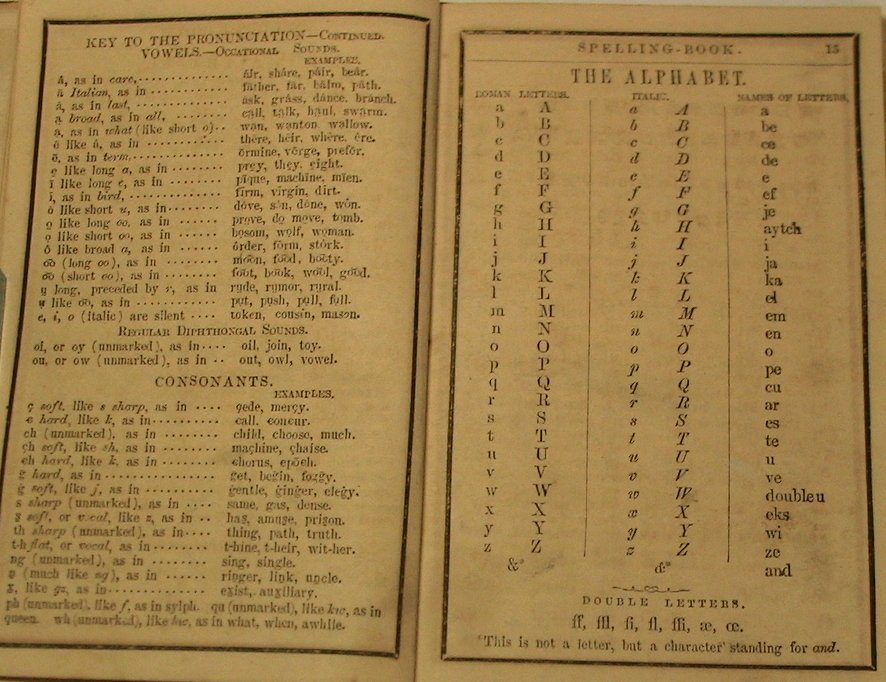 KEY TO THE PRONUNCIATION—CONTINUED.
VOWELS.—OCCASIONAL SOUNDS.
EXAMPLES.
â, as in care, âir, shâre, pâir, beâr.
ä Italian, as in fäther, fär, bälm, päth.
ȧ, as in last, ȧsk, grȧss, dȧnce, brȧnch.
a̤ broad, as in all, ca̤ll, ta̤lk, ha̤ul, swa̤rm.
ạ, as in what (like short o) wạn, wạnton, wạllow.
ê like â, as in thêre, hêir, whêre, êre.
ẽ, as in term, ẽrmine, vẽrge, prefẽr.
e̱ like long a, as in pre̱y, the̱y, e̱ight.
ï like long e, as in pïque, machïne, mïen.
ĩ, as in bird, fĩrm, vĩrgin, dĩrt.
ȯ like short u, as in dȯve, sȯn, dȯne, wȯn.
o̤ like long oo, as in pro̤ve, do̤, mo̤ve, to̤mb.
ọ like short oo, as in bọsom, wọlf, wọman.
ô like broad a, as in ôrder, fôrm, stôrk.
o͞o (long oo), as in mo͞on, fo͞od, bo͞oty.
o͝o (short oo), as in fo͝ot, bo͝ok, wo͝ol, go͝od.
ṳ long, preceded by r, as in rṳde, rṳmor, rṳral.
ụ like o͝o, as in pụt, pụsh, pụll, fụll.
e, i, o (italic) are silent token, cousin, mason.
REGULAR DIPHTHONGAL SOUNDS.
oi, or oy (unmarked), as in oil, join, toy.
ou, or ow (unmarked), as in out, owl, vowel.
CONSONANTS.
EXAMPLES.
ç soft, like s sharp, as in çede, merçy.
c hard, like k, as in call, concur.
ch (unmarked), as in child, choose, much.
çh soft, like sh, as in maçhine, çhaise.
ch hard, like k, as in chorus, epoch.
g hard, as in get, begin, foggy.
g soft, like j, as in gentle, ginger, elegy.
s sharp (unmarked), as in same, gas, dense.
s soft, or vocal, like z, as in has, amuse, prison.
th sharp (unmarked), as in thing, path, truth.
th flat, or vocal, as in thine, their, wither.
ng (unmarked), as in sing, single.
n (much like ng), as in ringer, link, uncle.
x, like gz, as in exist, auxiliary.
ph (unmarked), like f, as in sylph. qu (unmarked), like kw, as in
queen. wh (unmarked), like hw, as in what, when, awhile.
SPELLING-BOOK. 15
THE ALPHABET.
ROMAN LETTERS. ITALIC. NAMES OF LETTERS.
a A a A a
b B b B be
c C c C ce
d D d D de
e E e E e
f F f F ef
g G g G je
h H h H aytch
i I i I i
j J j J ja
k K k K ka
l L l L el
m M m M em
n N n N en
o O o O o
p P p P pe
q Q q Q cu
r R r R ar
s S s S es
t T t T te
u U u U u
v V v V ve
w W w W double u
x X x X eks
y Y y Y wi
z Z z Z ze
&* &* and
DOUBLE LETTERS.
ff, ffl, fi, fl, ffi, æ, œ.
*This is not a letter, but a character standing for and.